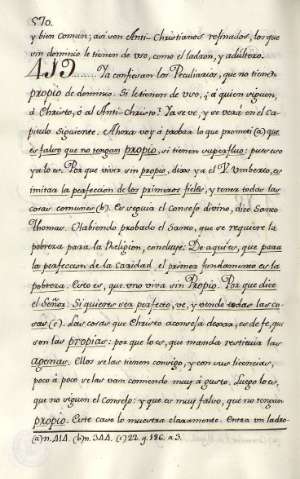 570.
y bien comun; asi son Anti-Christianos refinados, los que
sin dominio le tienen de uso, como el ladron, y adultero.
419.... Ya confiesan los Peculiarios, que no tienen
propio de dominio. Si le tienen de uso, ¿a quien siguen,
á Christo, ó al Anti-Christo? Ya se ve, y se verá en el ca-
pitulo siguiente. Ahora voy á probar lo que prometi (a) que
es falso que no tengan propio, si tienen superfluo: pues eso
ya lo ve. Por que vivir sin propio, dixo ya el V. Umberto, es
imitar la perfeccion de los primeros fieles, y tener todas las
cosas comunes (b). Es seguir el Consejo divino, dice Santo
Thomas. Habiendo probado el Santo, que se requiere la
pobreza para la Religion, concluye: De aqui es, que para
la perfeccion de la Caridad, el primer fundamento es la
pobreza. Esto es, que uno viva sin Propio. Por que dice
el Señor: Si quieres ser perfecto, ve, y vende todas las co-
sas (c). Las cosas que Christo aconseja dexar, es de fe, que
son las propias: por que lo es, que manda restituir las
agenas. Ellos se las tienen consigo, y con sus licencias,
poco á poco se las van comiendo muy á gusto. Luego lo es,
que no siguen el Consejo: y que es muy falso, que no tengan
propio. Este caso lo muestra claramente. Entra un ladro
(a) n. 414. (b) n. 344. (c) 22. q. 186. a. 3.